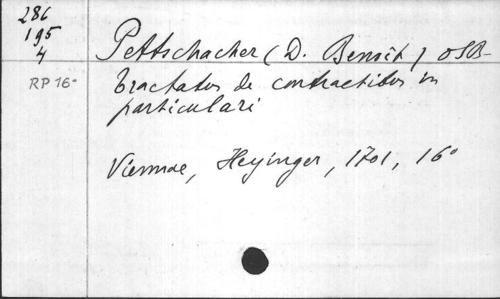 286
195
4
RP 16°
Pettschacher (D. Benoît) OSB-
Tractatus de contractibus in
particulari
Viennae, Heyinger, 1701, 16°